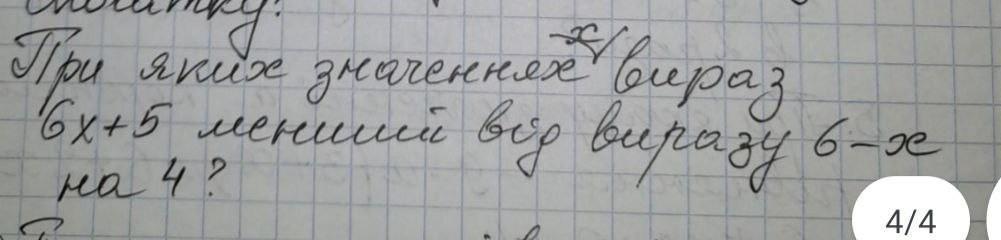 спочатку?
При яких значеннях x вираз
6x+5 менший від виразу 6-x
на 4?
4/4